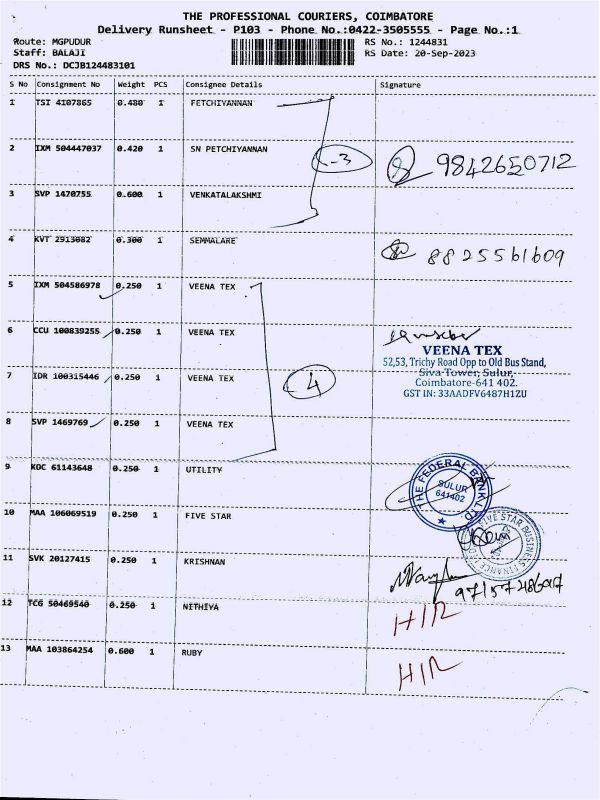 THE PROFESSIONAL COURIERS, COIMBATORE
Delivery Runsheet - P103 - Phone No.:0422-3505555 - Page No.:1
Route: MGPUDUR RS No.: 1244831
Staff: BALAJI RS Date: 20-Sep-2023
DRS No.: DCJB124483101
S No Consignment No Weight PCS Consignee Details Signature
1 TSI 4107865 0.480 1 FETCHIYANNAN
2 IXM 504447037 0.420 1 SN PETCHIYANNAN -3 9842650712
3 SVP 1470755 0.600 1 VENKATALAKSHMI
4 KVT 2913082 0.300 1 SEMMALARE 8825561609
5 IXM 504586978 0.250 1 VEENA TEX
6 CCU 100839255 0.250 1 VEENA TEX
VEENA TEX
52,53, Trichy Road Opp to Old Bus Stand,
Siva Tower, Sulur,
7 IDR 100315446 0.250 1 VEENA TEX 4 Coimbatore-641 402.
GST IN: 33AADFV6487H1ZU
8 SVP 1469769 0.250 1 VEENA TEX
9 KOC 61143648 0.250 1 UTILITY
THE FEDERAL BANK LTD
SULUR
641402
10 MAA 106069519 0.250 1 FIVE STAR
FIVE STAR BUSINESS FINANCE
11 SVK 20127415 0.250 1 KRISHNAN
12 TCG 50469540 0.250 1 NITHIYA HIR
13 MAA 103864254 0.600 1 RUBY HIR